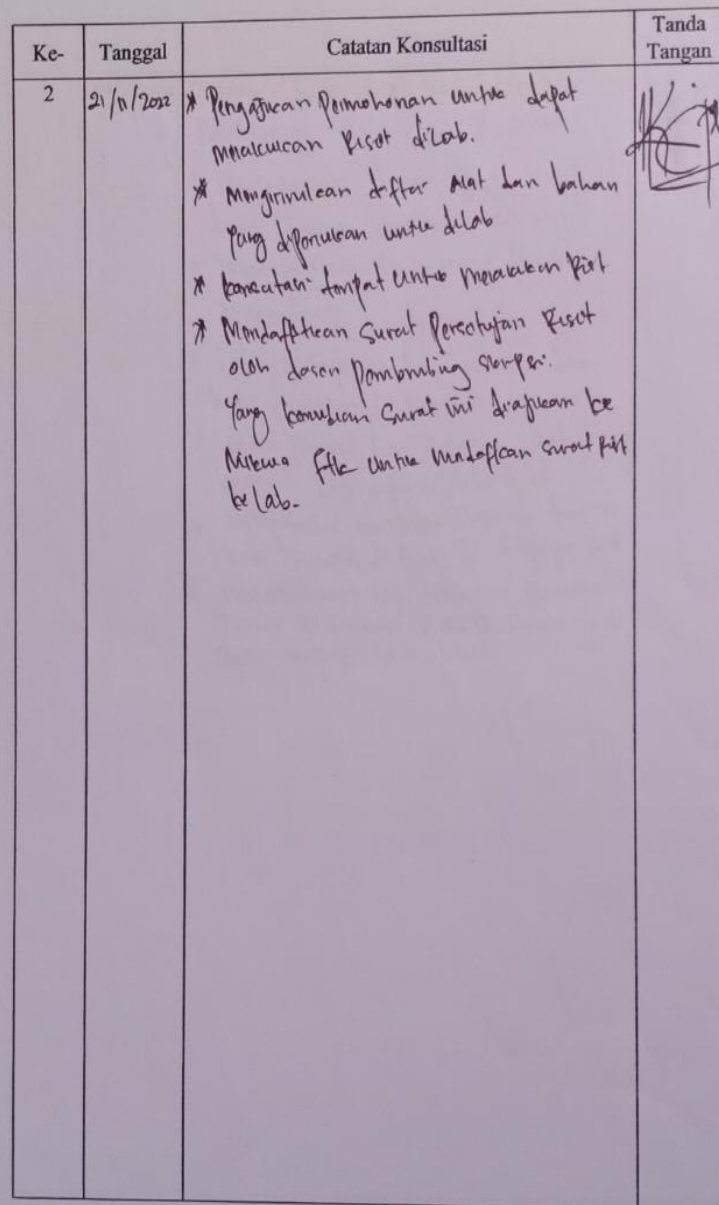 Ke- Tanggal Catatan Konsultasi Tanda Tangan
2 21/11/2022 * Pengajuan Permohonan untuk dapat
melakukan Riset dilab.
* Mengirimkan daftar alat dan bahan
Yang diperlukan untuk dilab
* tempat untuk melakukan Riset
* Mendapatkan Surat Persetujuan Riset
oleh dosen Pembimbing skripsi.
Yang kemudian Surat ini diajukan ke
untuk mendapatkan surat Riset
ke lab.